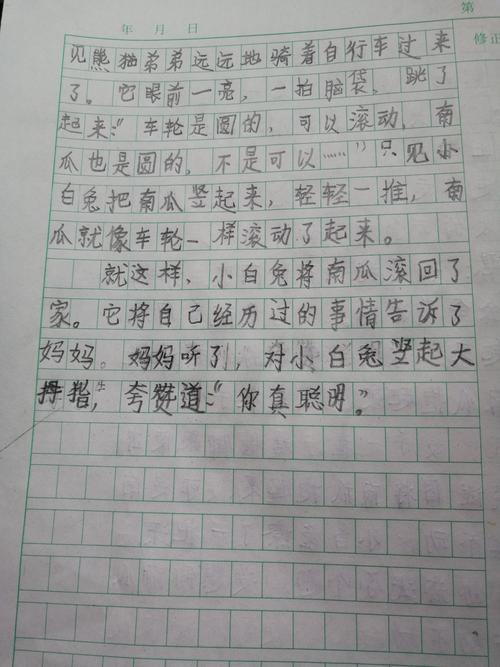 第
年 月 日
修正
见熊猫弟弟远远地骑着自行车过来
了。它眼前一亮，一拍脑袋，跳了
起来：“车轮是圆的，可以滚动，南
瓜也是圆的，不是可以……”只见小
白兔把南瓜竖起来，轻轻一推，南
瓜就像车轮一样滚动了起来。
就这样，小白兔将南瓜滚回了
家。它将自己经历过的事情告诉了
妈妈。妈妈听了，对小白兔竖起大
拇指，夸赞道：“你真聪明。”